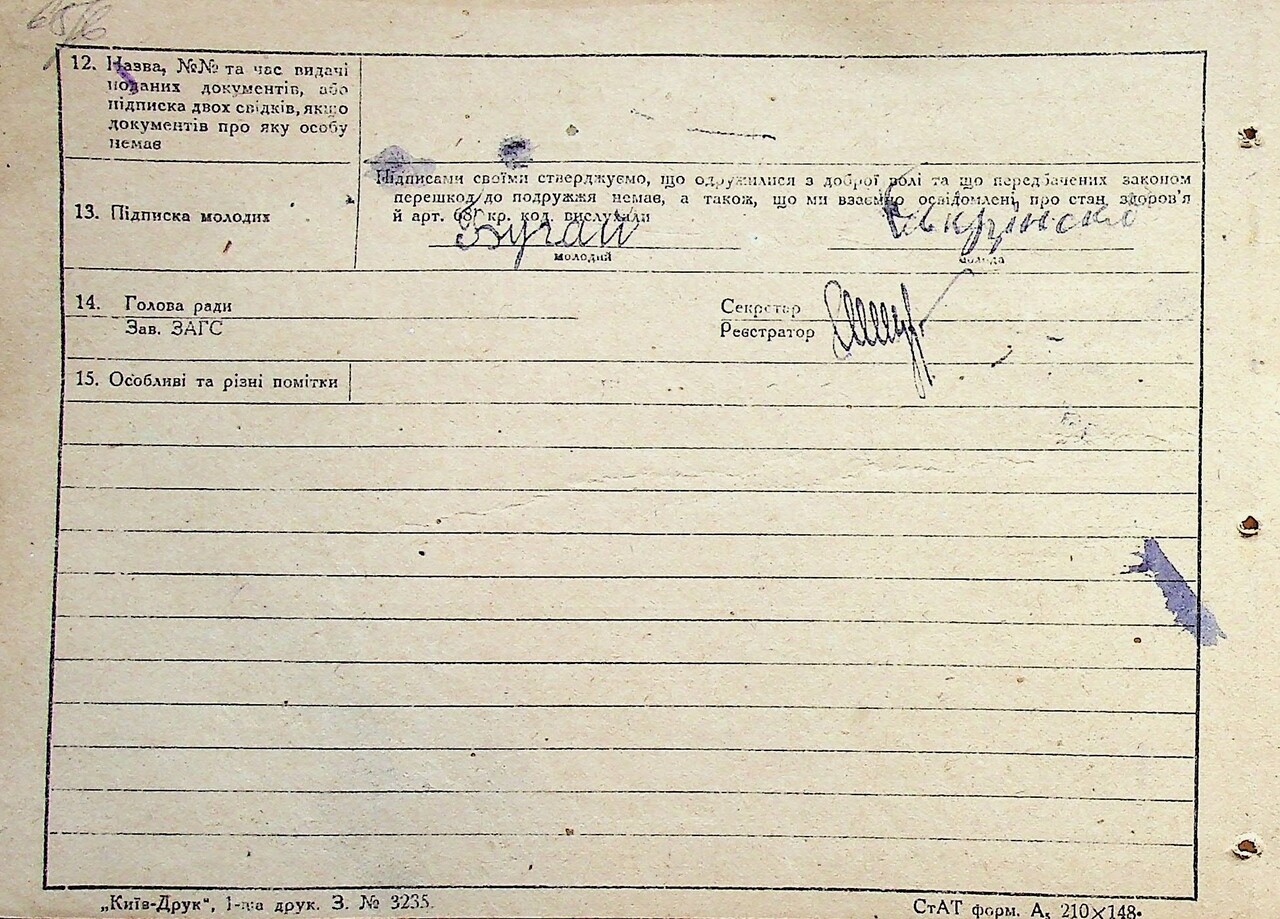 12. Назва, №№ та час видачі
поданих документів, або
підписка двох свідків, якщо
документів про яку особу
немає
Підписами своїми стверджуємо, що одружилися з доброї волі та що передбачених законом
перешкод до подружжя немає, а також, що ми взаємно освідомлені про стан здоров'я
13. Підписка молодих
й арт. кр. код. вислухали
Бугай
молодий
молода
14. Голова ради
Секретар
Зав. ЗАГС
Реєстратор
15. Особливі та різні помітки
„Київ-Друк“, 1-ша друк. З. № 3235.
СтАТ форм. А₅ 210×148.